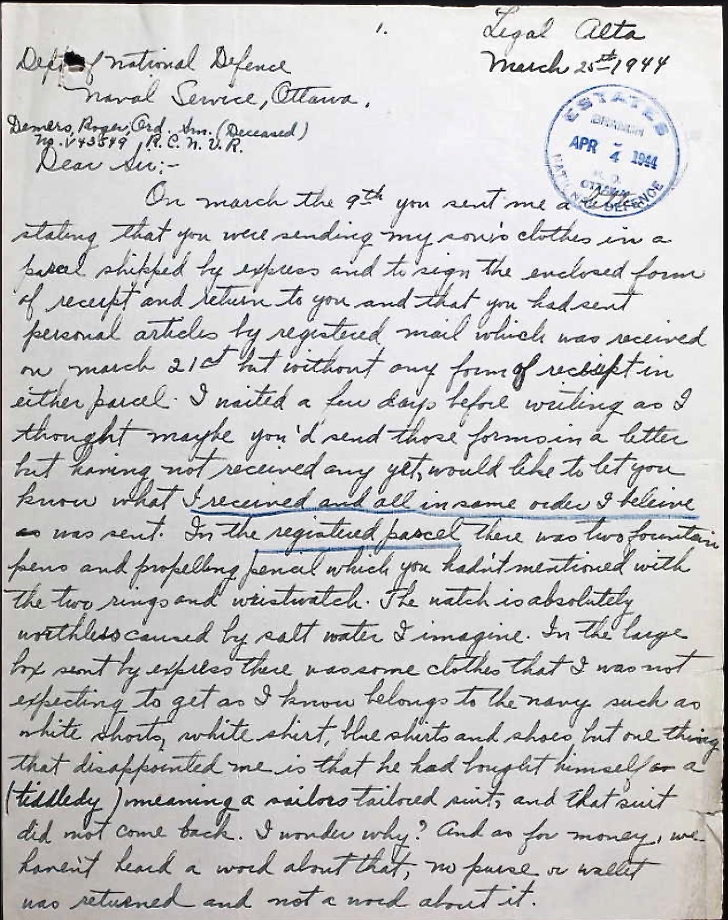 1.
Legal Alta
March 25th 1944
Dept of National Defence
Naval Service, Ottawa.
Demers, Roger, Ord. Sm. (Deceased)
No. V43549 R.C.N.V.R.
Dear Sir;-
ESTATES
BRANCH
APR 4 1944
OTTAWA
NATIONAL DEFENCE
On march the 9th you sent me a letter
stating that you were sending my son's clothes in a
parcel shipped by express and to sign the enclosed form
of receipt and return to you and that you had sent
personal articles by registered mail which was received
on march 21st but without any form of receipt in
either parcel. I waited a few days before writing as I
thought maybe you'd send those forms in a letter
but having not received any yet, would like to let you
know what I received and all in same order I beleive
as was sent. In the registered parcel there was two fountain
pens and propelling pencil which you hadn't mentioned with
the two rings and wristwatch. The watch is absolutely
worthless caused by salt water I imagine. In the large
box sent by express there was some clothes that I was not
expecting to get as I know belongs to the navy such as
white shorts, white shirt, blue shirts and shoes but one thing
that disappointed me is that he had bought himself a
(tiddledy) meaning a sailors tailored suit, and that suit
did not come back. I wonder why? And as for money, we
haven't heard a word about that, no purse or wallet
was returned and not a word about it.